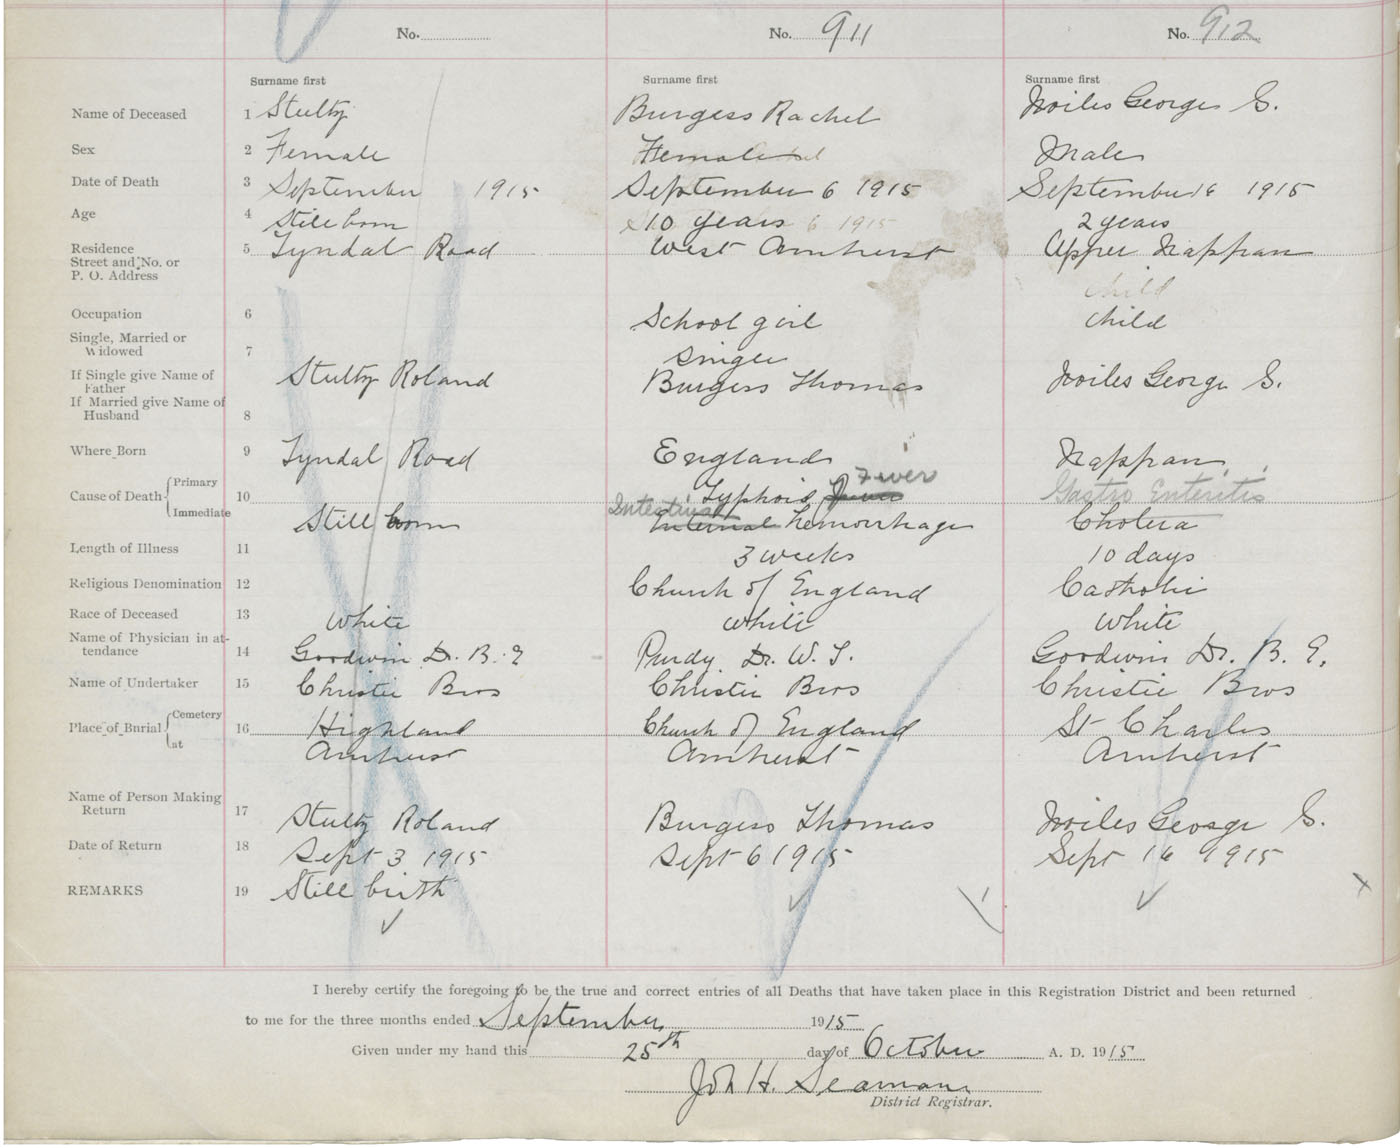 No. No. 911 No. 912
Surname first Surname first Surname first
Name of Deceased 1 Stultz Burgess Rachel Noiles George S.
Sex 2 Female Female Male
Date of Death 3 September 1915 September 6 1915 September 16 1915
Age 4 Still born 10 years 6 1915 2 years
Residence 5 Tyndal Road West Amherst Upper Nappan
Street and No. or
P. O. Address
child
Occupation 6 School girl child
Single, Married or
Widowed 7 Single
If Single give Name of Stultz Roland Burgess Thomas Noiles George S.
Father
If Married give Name of
Husband 8
Where Born 9 Tyndal Road England Nappan
Fever
Cause of Death Primary 10 Typhoid Fever Gastro Enteritis
Intestinal
Immediate Still born Internal hemorrhage Cholera
Length of Illness 11 3 weeks 10 days
Religious Denomination 12 Church of England Catholic
Race of Deceased 13 White White White
Name of Physician in at-
tendance 14 Goodwin Dr. B. E Purdy Dr. W. T. Goodwin Dr. B. E.
Name of Undertaker 15 Christie Bros Christie Bros Christie Bros
Place of Burial Cemetery 16 Highland Church of England St Charles
at Amherst Amherst Amherst
Name of Person Making
Return 17 Stultz Roland Burgess Thomas Noiles George S.
Date of Return 18 Sept 3 1915 Sept 6 1915 Sept 16 1915
REMARKS 19 Still birth
I hereby certify the foregoing to be the true and correct entries of all Deaths that have taken place in this Registration District and been returned
to me for the three months ended September 1915
Given under my hand this 25th day of October A. D. 1915
Joh H. Seaman
District Registrar.